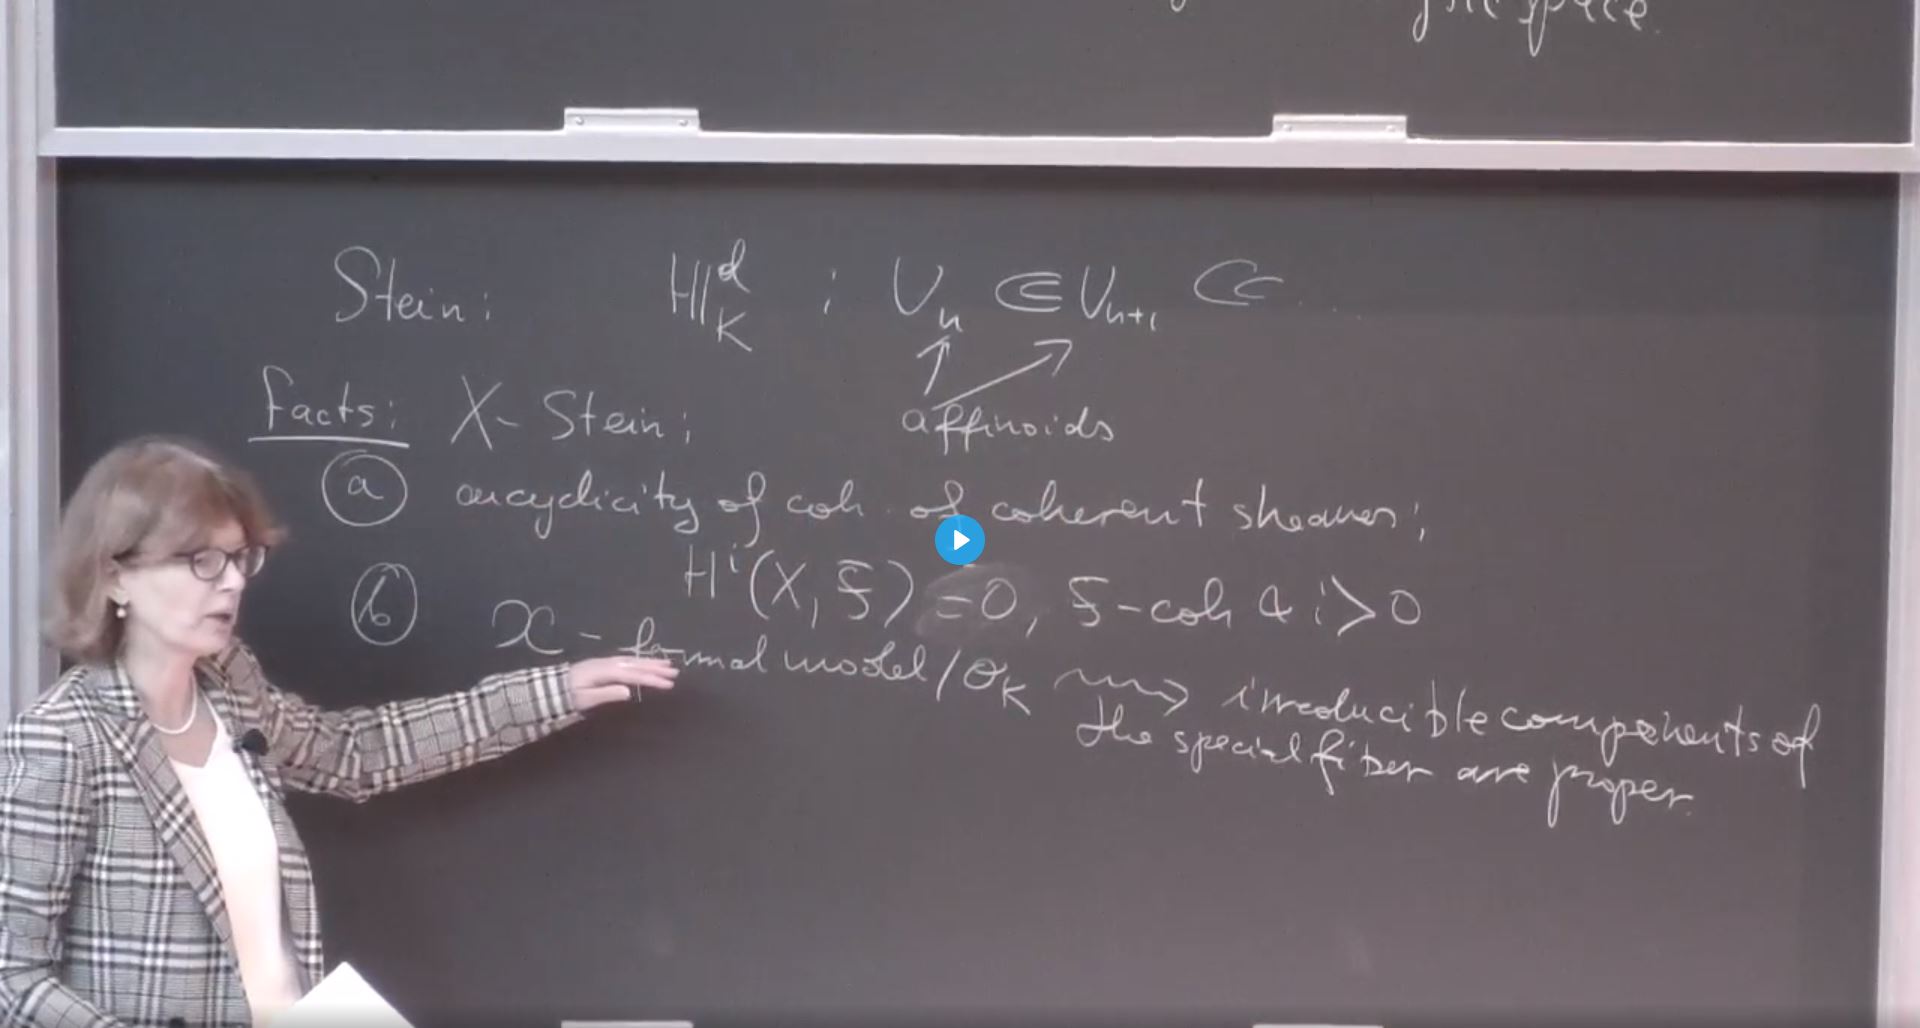 space.
Stein: ℍ^d_K ; U_n ⋐ U_{n+1} ⋐ ...
affinoids
Facts: X - Stein;
(a) acyclicity of coh. of coherent sheaves;
H^i(X, F) = 0, F - coh & i > 0
(b) 𝒳 - formal model / O_K ⇝ irreducible components of
the special fiber are proper.